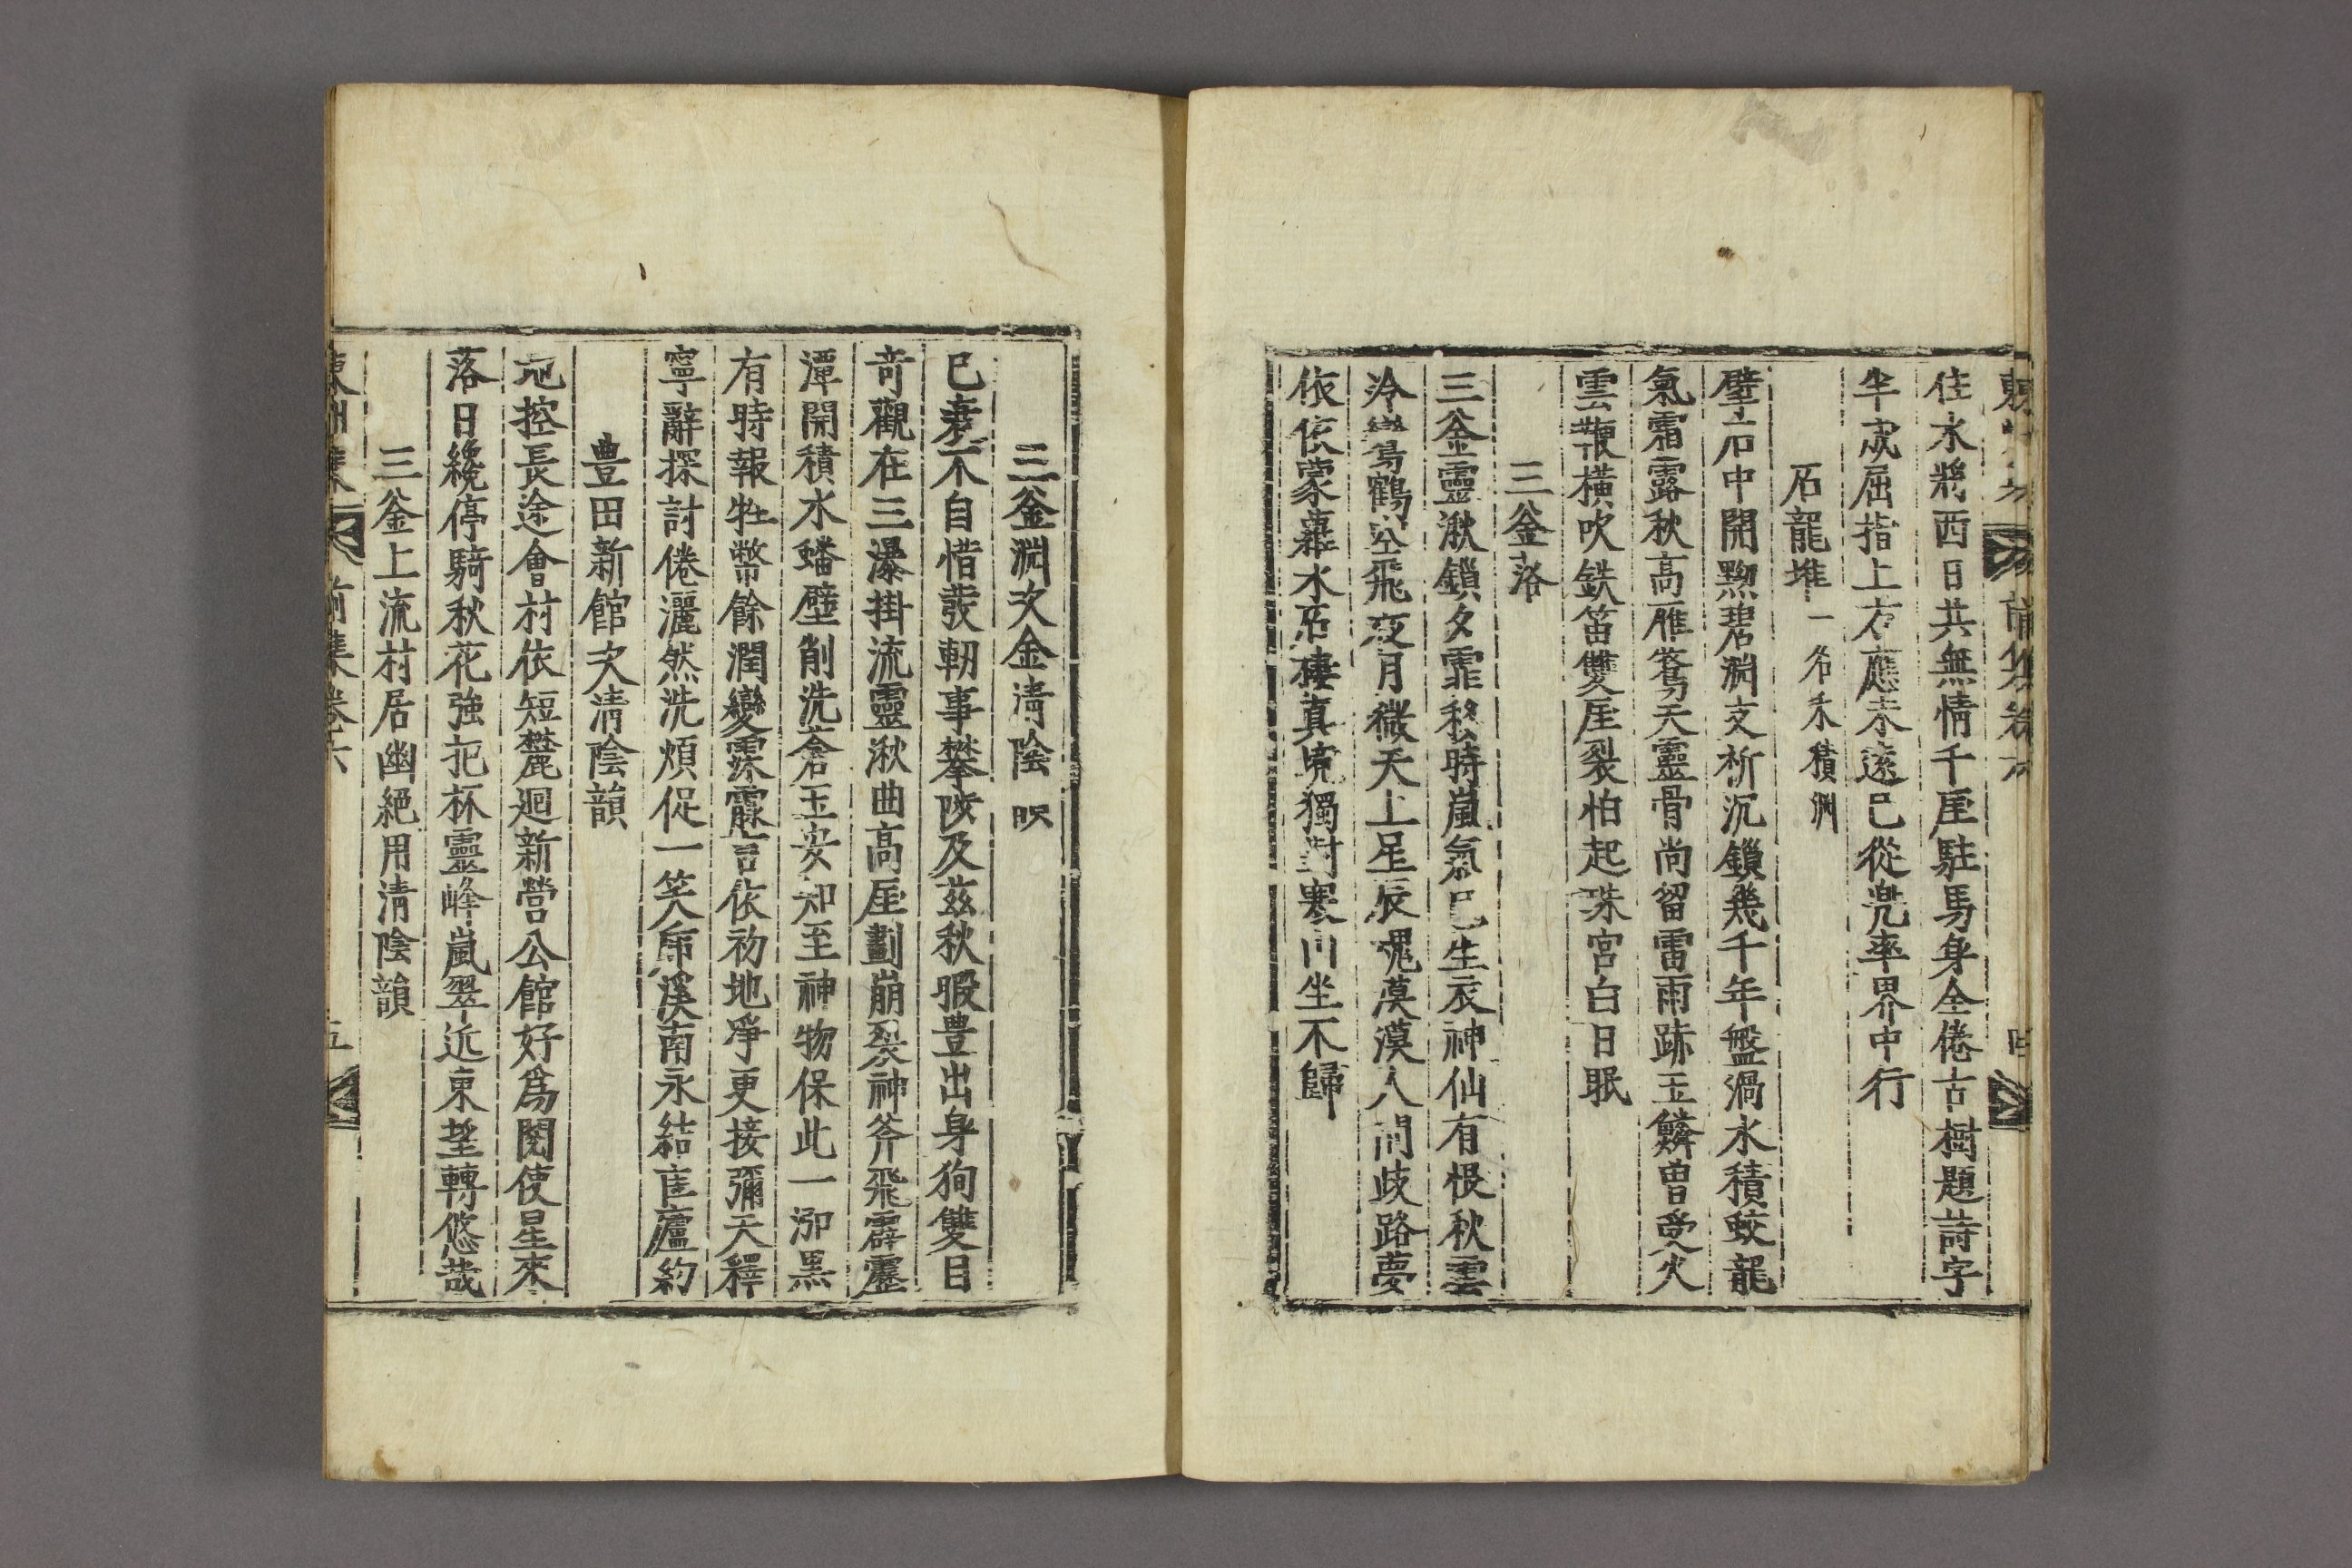 住水將西日共無情千厓駐馬身全倦古樹題詩字
半成屈指上方應未遠已從兜率界中行
石龍堆一名禾積淵
壁立石中開黝碧淵支祈沉鎖幾千年盤渦水積蛟龍
氣霜露秋高雁鶩天靈骨尚留雷雨跡玉鱗曾受火
雲鞭橫吹鉄笛雙厓裂怕起珠宮白日眠
三釜落
三釜靈湫鎖夕霏移時嵐氣已生衣神仙有恨秋雲
冷鸞鶴空飛夜月微天上星辰魂漠漠人間歧路夢
依依蒙莊水石棲眞處獨對寒川坐不歸
前集卷六
三釜淵次金淸陰
已衰不自惜發軔事攀陟及玆秋暇豊出身狥雙目
奇觀在三瀑掛流靈湫曲高厓劃崩裂神斧飛霹靂
潭開積水蟠壁削洗蒼玉安知至神物保此一泓黒
有時報牲幣餘潤變霡霂言依初地爭更接彌天釋
寧辭探討倦灑然洗煩促一笑席溪南永結匡廬約
豊田新館次淸陰韻
地控長途會村依短麓廻新營公館好爲閱使星來
落日纔停騎秋花強把杯靈峰嵐翠近東望轉悠哉
三釜上流村居幽絕用淸陰韻
東洲集 前集卷六 五